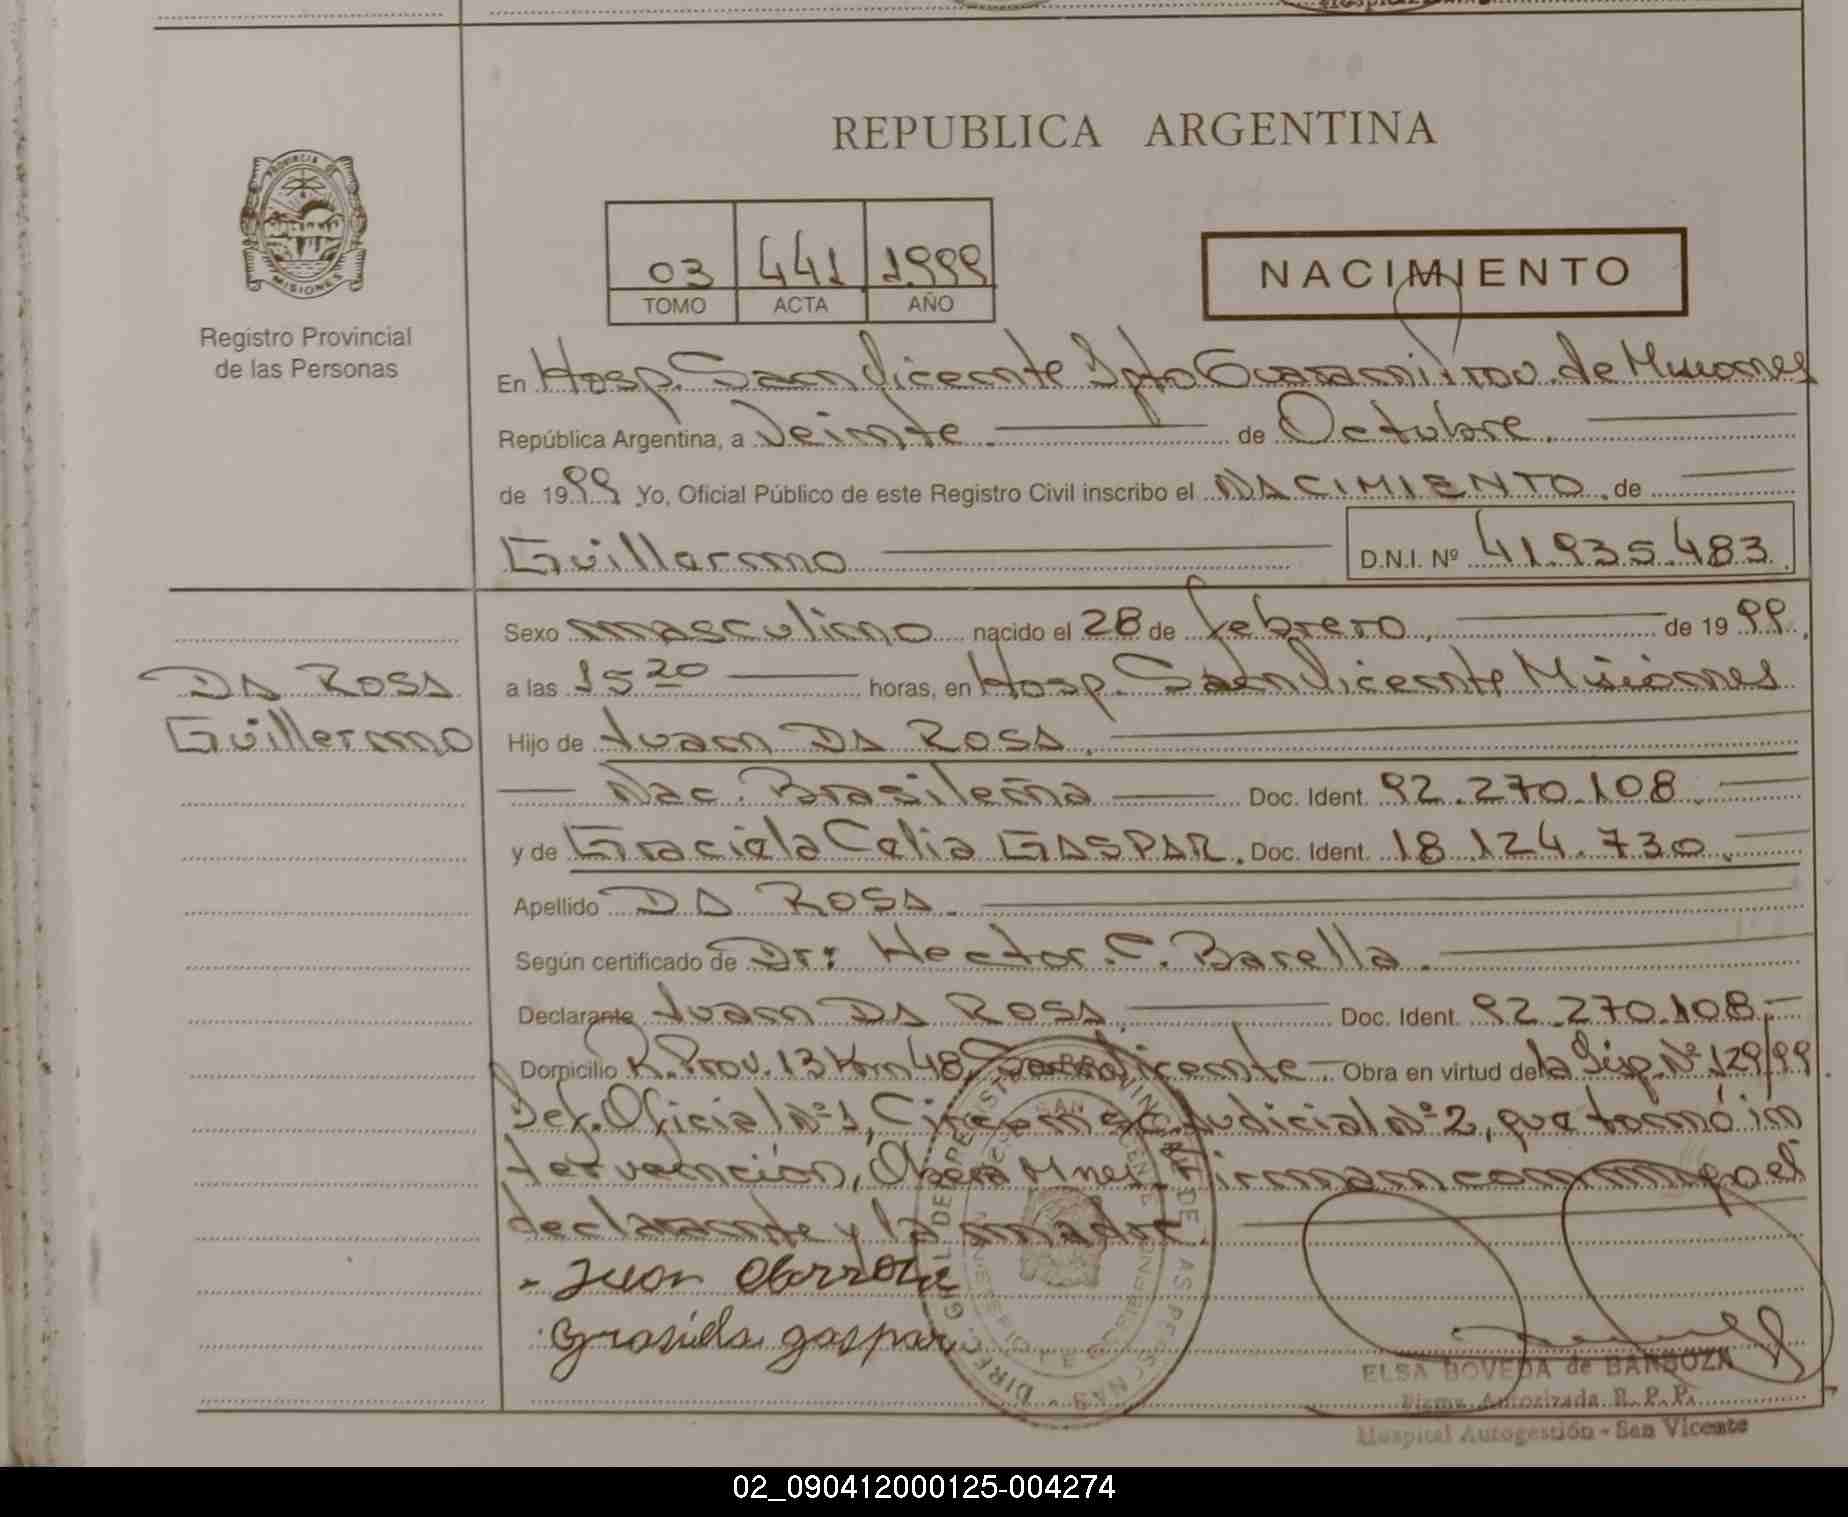 REPUBLICA ARGENTINA
PROVINCIA DE
MISIONES
Registro Provincial
de las Personas
03 441 1999
TOMO ACTA AÑO
NACIMIENTO
En Hosp. San Vicente Dpto Guaraní Prov. de Misiones
República Argentina, a Veinte de Octubre.
de 1999 Yo, Oficial Público de este Registro Civil inscribo el NACIMIENTO de
Guillermo D.N.I. Nº 41.935.483
Sexo masculino nacido el 28 de febrero, de 1999,
DA ROSA
Guillermo
a las 15 20 horas, en Hosp. San Vicente Misiones
Hijo de Juan DA ROSA,
Nac. Brasileña Doc. Ident. 92.270.108.
y de Graciela Celia GASPAR. Doc. Ident. 18.124.730.
Apellido DA ROSA.
Según certificado de Dr: Hector.C. Barella.
Declarante Juan DA ROSA, Doc. Ident. 92.270.108.
Domicilio R. Prov. 13 Km 48, San Vicente. Obra en virtud de la Disp. Nº 129/99
Def. Oficial Nº1, Circunsc. Judicial Nº2, que tomó in
tervención, Oberá Mnes. Firman conmigo el
declarante y la madre.
Juan
Grasiela gaspar
ELSA BOVEDA de BARBOZA
Firma Autorizada R. P. P.
Hospital Autogestión - San Vicente
02_090412000125-004274